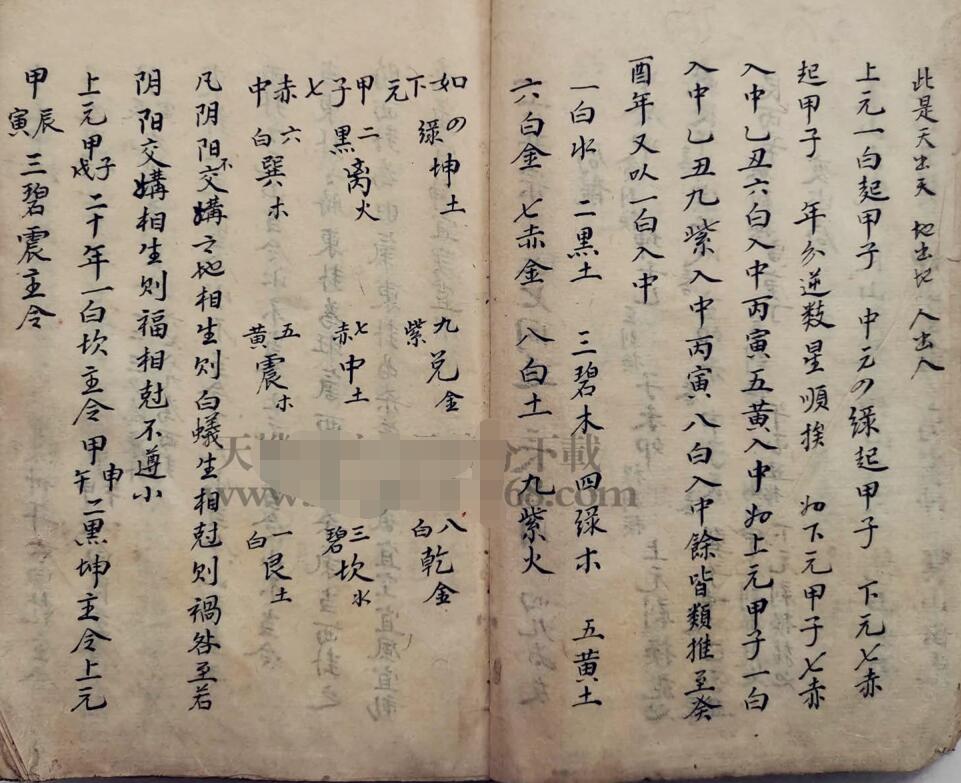 此是天出天 地出地 人出人
上元一白起甲子 中元四綠起甲子 下元七赤
起甲子 年分逆数星順挨 如下元甲子七赤
入中乙丑六白入中丙寅五黄入中如上元甲子一白
入中乙丑九紫入中丙寅八白入中餘皆類推至癸
酉年又以一白入中
一白水 二黑土 三碧木 四綠木 五黄土
六白金 七赤金 八白土 九紫火
如下元甲子七赤中
四綠坤土 九紫兑金 八白乾金
二黑离火 七赤中土 三碧坎水
六白巽木 五黄震木 一白艮土
凡阴阳不交媾之地相生则白蟻生相尅则禍咎至若
阴阳交媾相生则福相尅不遵小
上元甲子戌二十年一白坎主令甲申午二黑坤主令上元
甲辰寅三碧震主令